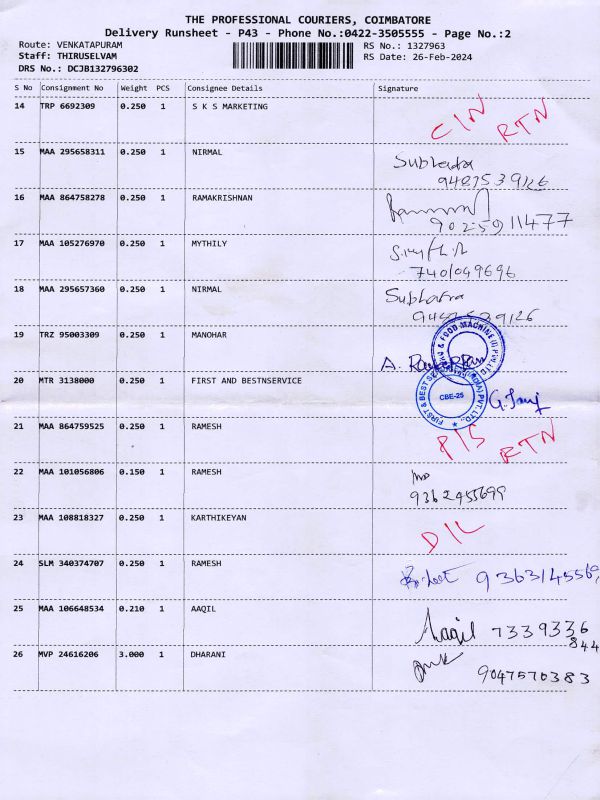 THE PROFESSIONAL COURIERS, COIMBATORE
Delivery Runsheet - P43 - Phone No.:0422-3505555 - Page No.:2
Route: VENKATAPURAM RS No.: 1327963
Staff: THIRUSELVAM RS Date: 26-Feb-2024
DRS No.: DCJB132796302
S No Consignment No Weight PCS Consignee Details Signature
14 TRP 6692309 0.250 1 S K S MARKETING C/N RTN
15 MAA 295658311 0.250 1 NIRMAL Subhadra
9487539126
16 MAA 864758278 0.250 1 RAMAKRISHNAN
9025911477
17 MAA 105276970 0.250 1 MYTHILY
7401049696
18 MAA 295657360 0.250 1 NIRMAL Subhadra
9487539126
19 TRZ 95003309 0.250 1 MANOHAR
& FOOD MACHINE (I) PVT. LTD.
20 MTR 3138000 0.250 1 FIRST AND BESTNSERVICE
FIRST & BEST (INDIA) PVT. LTD.
CBE-25
21 MAA 864759525 0.250 1 RAMESH P/S RTN
22 MAA 101056806 0.150 1 RAMESH
9362455699
23 MAA 108818327 0.250 1 KARTHIKEYAN D/L
24 SLM 340374707 0.250 1 RAMESH 9363145569
25 MAA 106648534 0.210 1 AAQIL Aaqil 7339336
844
26 MVP 24616206 3.000 1 DHARANI
9047570383